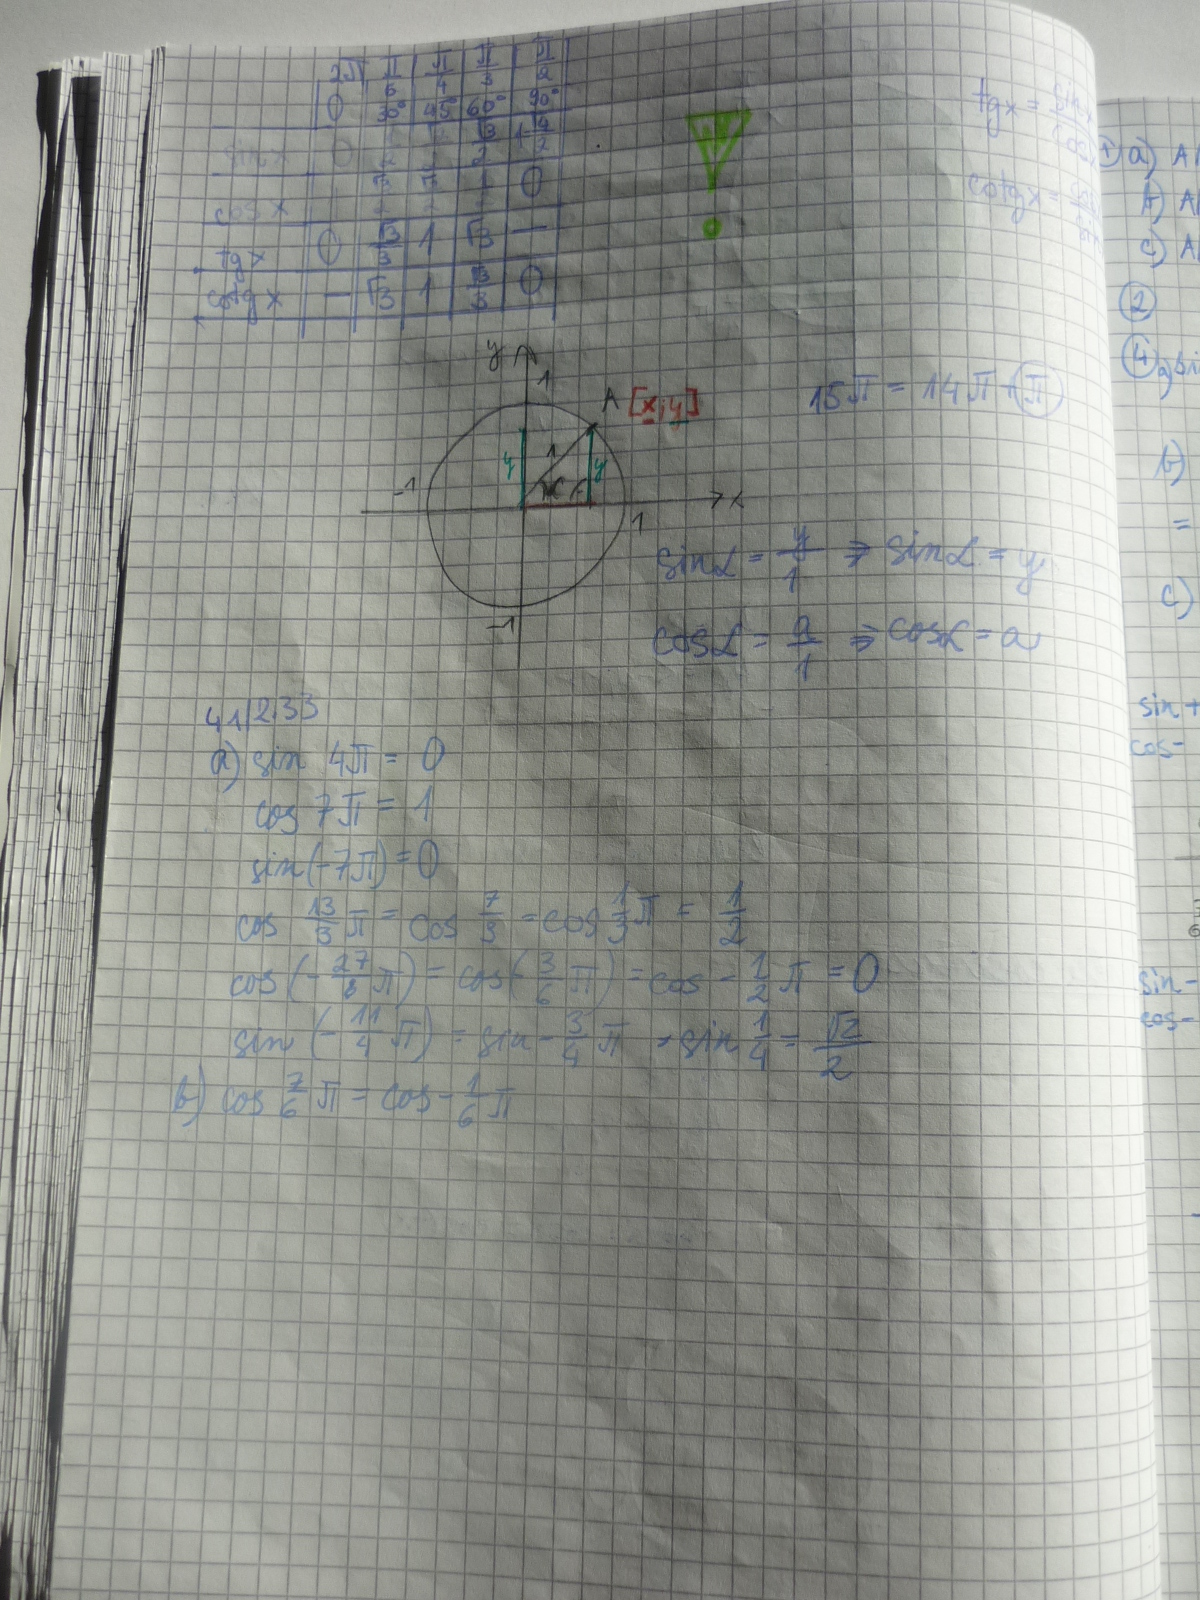 2π π/6 π/4 π/3 π/2
0 30° 45° 60° 90°
sin x 0 1/2 √2/2 √3/2 1
cos x 1 √3/2 √2/2 1/2 0
tg x 0 √3/3 1 √3 —
cotg x — √3 1 √3/3 0
tg x = sin x / cos
cotg x = cos
y
1
A [x;y]
15π = 14π + π
y 1 y
-1 1 x
-1
sin α = y/1 ⇒ sin α = y
cos α = a/1 ⇒ cos α = a
41/2.33
a) sin 4π = 0
cos 7π = 1
sin(-7π) = 0
cos 13/3 π = cos 7/3 = cos 1/3 π = 1/2
cos (-27/6 π) = cos(-3/6 π) = cos - 1/2 π = 0
sin (-11/4 π) = sin - 3/4 π = sin 1/4 = √2/2
b) cos 7/6 π = cos - 1/6 π
1 a) A
c) A
2
4 a) sin
b)
=
c)
sin +
cos -
sin -
cos -